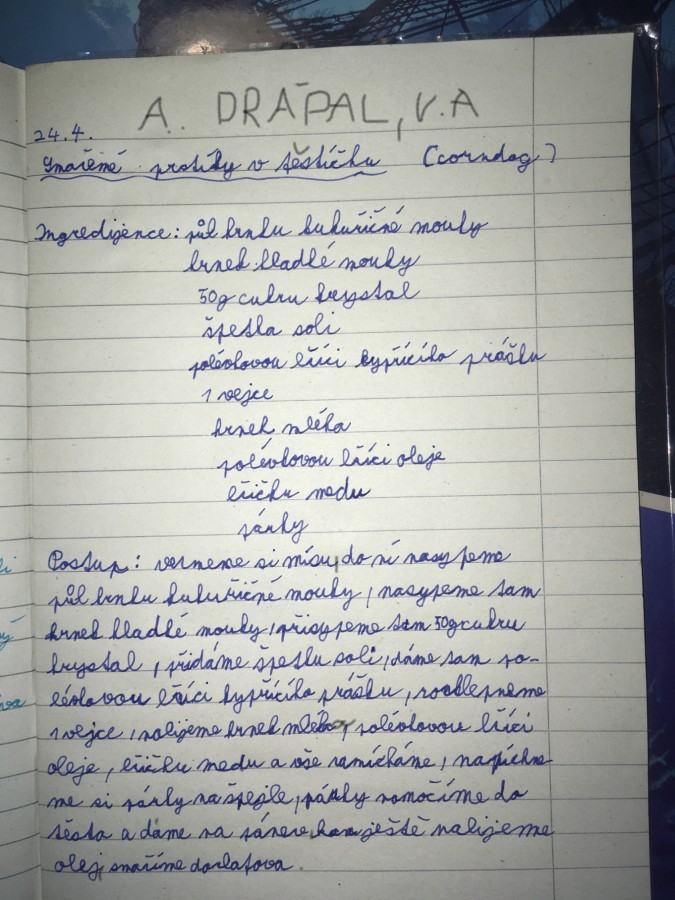 A. DRÁPAL, V.A
24.4.
Smažené párky v těstíčku (corndog)
Ingredijence: půl hrnku kukuřičné mouky
hrnek hladké mouky
50g cukru krystal
špetka soli
polévkovou lžíci kypřícího prášku
1 vejce
hrnek mléka
polévkovou lžíci oleje
lžičku medu
párky
Postup: vezmeme si mísu, do ní nasypeme
půl hrnku kukuřičné mouky, nasypeme tam
hrnek hladké mouky, přisypeme tam 50g cukru
krystal, přidáme špetku soli, dáme tam po-
lévkovou lžíci kypřícího prášku, rozklepneme
1 vejce, nalijeme hrnek mléka, polévkovou lžíci
oleje, lžičku medu a vše zamícháme, napíchne-
me si párky na špejle, párky namočíme do
těsta a dáme na pánev, kam ještě nalijeme
olej, smažíme dozlatova.